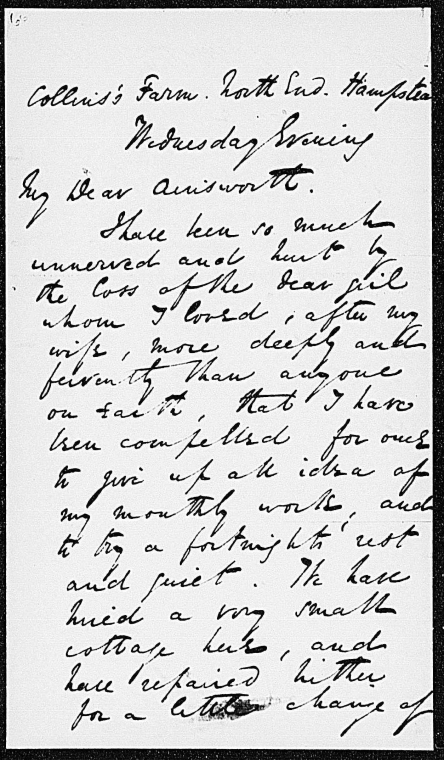 Collins's Farm. North End. Hampstea
Wednesday Evening
My Dear Ainsworth.
I have been so much
unnerved and hurt by
the loss of the dear girl
whom I loved, after my
wife, more deeply and
fervently than anyone
on Earth, that I have
been compelled for once
to give up all idea of
my monthly work, and
to try a fortnight's rest
and quiet. We have
hired a very small
cottage here, and
have repaired hither
for a little change of